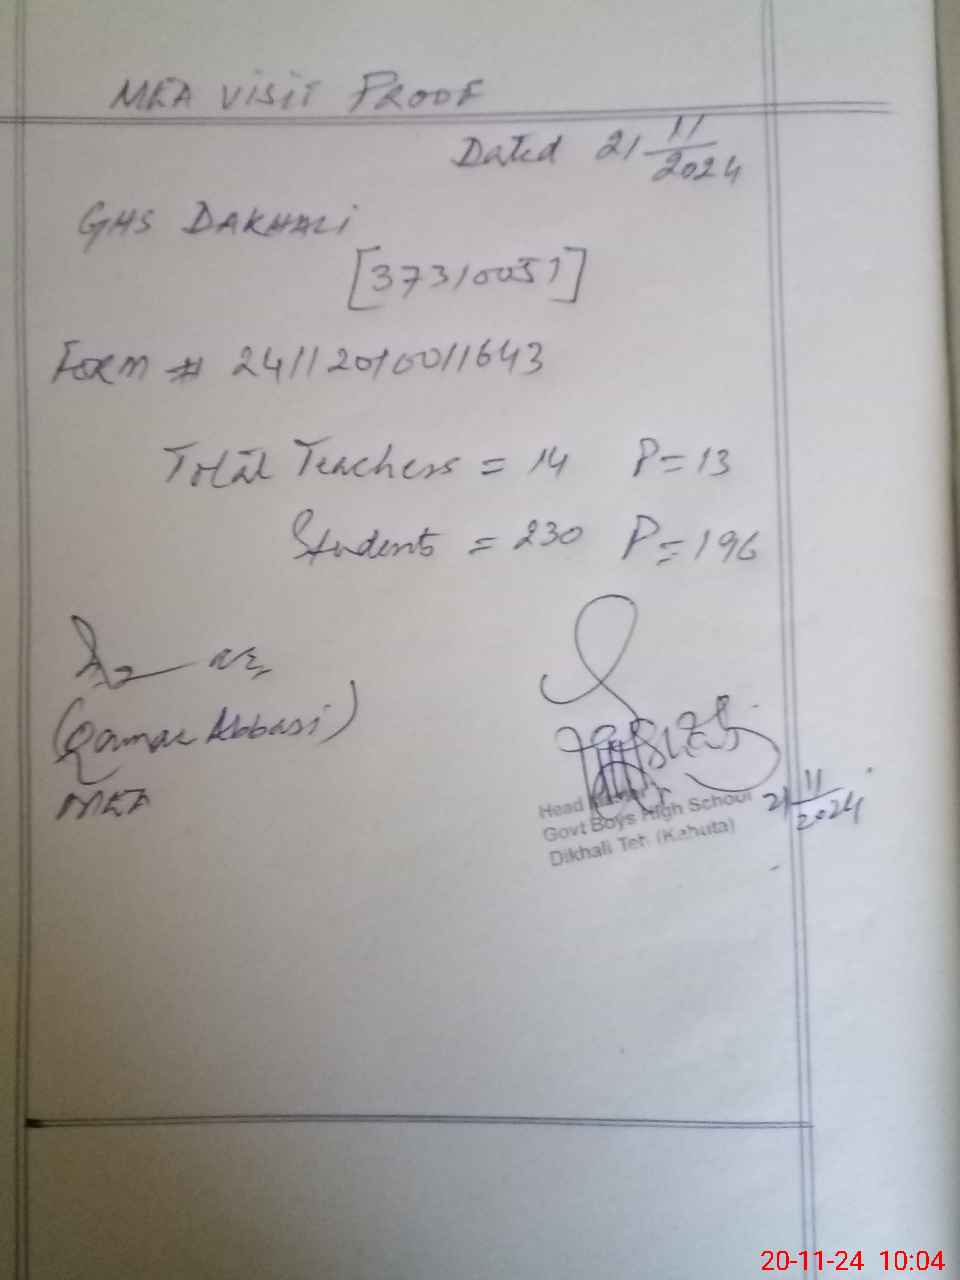 MEA VISIT PROOF
Dated 21/11/2024
GHS DAKHALI
[37310051]
Form # 24112010011643
Total Teachers = 14 P=13
Students = 230 P=196
(Qamar Abbasi)
MEA
Head
Govt Boys High School
Dikhali Teh (Kahuta)
21/11/2024
20-11-24 10:04